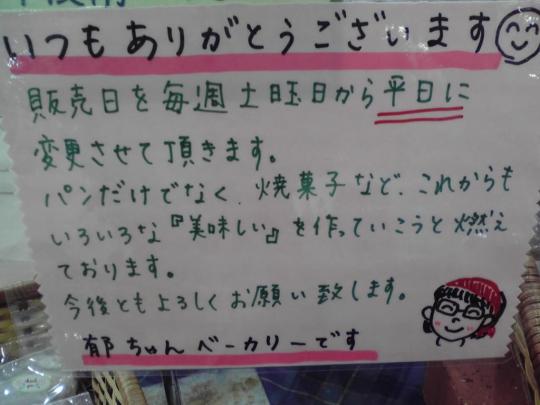 いつもありがとうございます
販売日を毎週土日から平日に
変更させて頂きます。
パンだけでなく、焼菓子など、これからも
いろいろな『美味しい』を作っていこうと燃え
ております。
今後ともよろしくお願い致します。
郁ちゃんベーカリーです